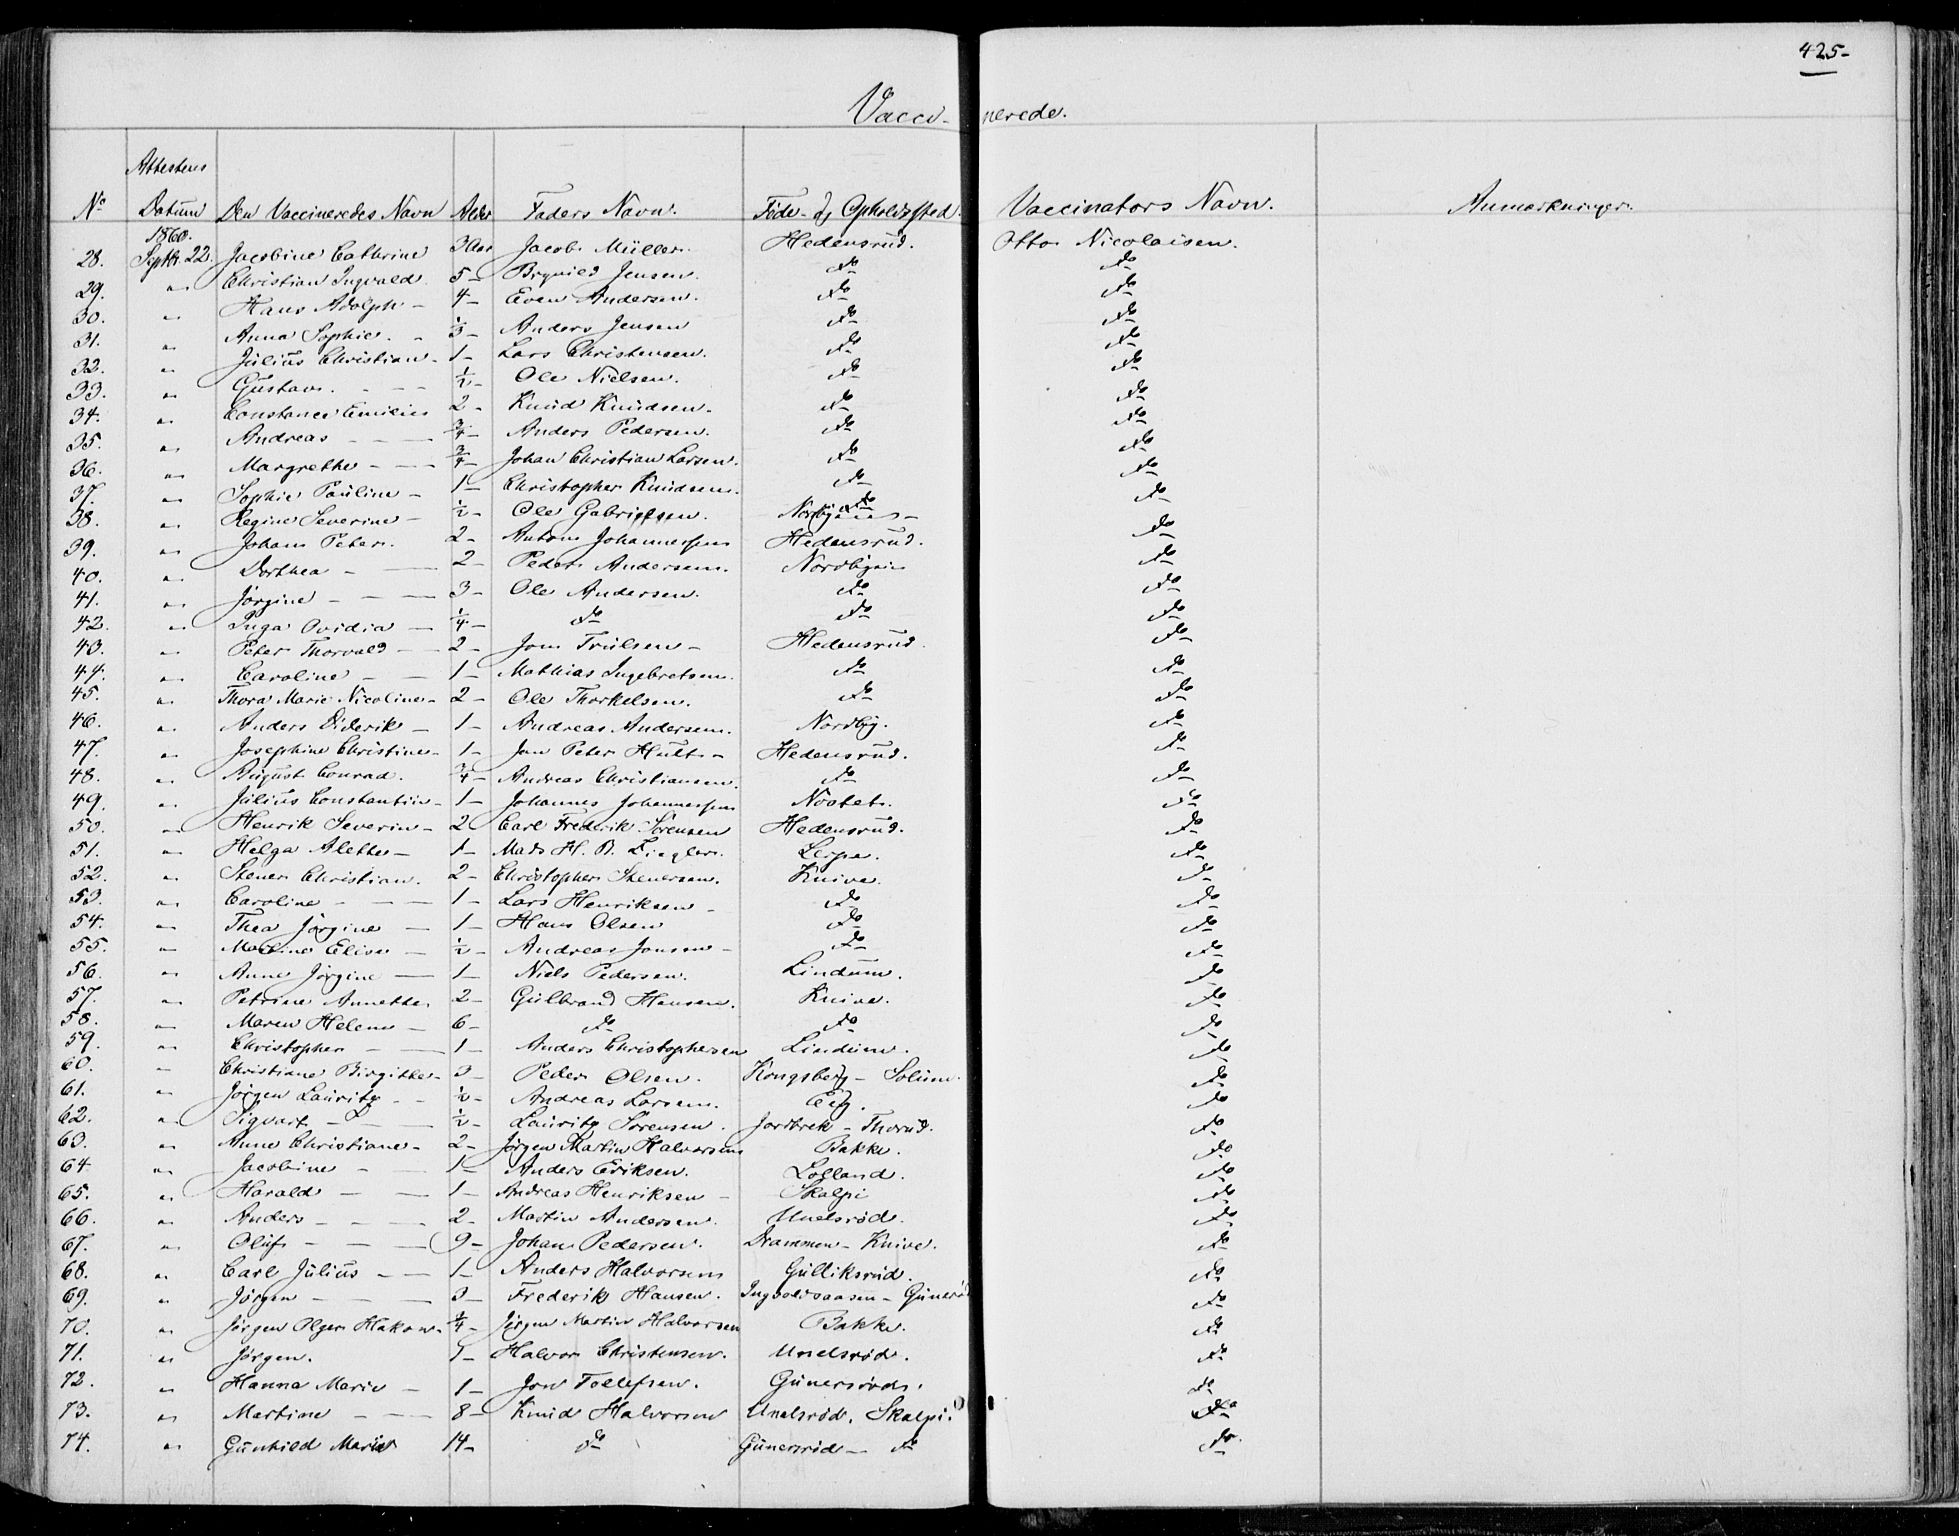 425-
Vacci- nerede.
Attestens
No Datum Den Vaccineredes Navn Alder Faders Navn. Føde- og Opholdssted. Vaccinators Navn. Anmærkninger.
1860.
28. Septbr. 22. Jacobine Cathrine 3 Aar Jacob Müller. Hedensrud. Otto Nicolaisen.
29. " Christian Ingvald 5 - Brynild Jensen. do do
30. " Hans Adolph - 4 - Even Andersen. do do
31. " Anna Sophie. - 1/3 - Anders Jensen do do
32. " Julius Christian - 1 - Lars Christensen. do do
33. " Gustav. - - - 1/2 - Ole Nielsen. do do
34. " Constance Emilie 2 - Knud Knudsen. do do
35. " Andreas - - - 3/4 - Anders Pedersen. do do
36. " Margrethe - - 3/4 - Johan Christian Larsen. do do
37. " Sophie Pauline - 1 - Christopher Knudsen. do do
38. " Regine Severine - 1/2 - Ole Gabrielsen. do
39. " Johan Peter. 2 - Anton Johannessen Hedensrud. do
40. " Dorthea - - 2 - Peder Andersen. Nordbyeie do
41. " Jørgine - - - 3 - Ole Andersen. do do
42. " Inga Ovidia - 1/4 - do do do
43. " Peter Thorvald - 2 - Jon Trulsen - Hedensrud. do
44. " Caroline - - 1 - Mathias Ingebretsen. do do
45. " Thora Marie Nicoline - 2 - Ole Thorkelsen. do do
46. " Anders Diderik - 1 - Andreas Andersen. Nordby. do
47. " Josephine Christine - 1 - Jan Peter Hult - Hedensrud. do
48. " August Conrad. 3/4 - Andreas Christiansen. do do
49. " Julius Constantin - 1 - Johannes Johannessen Nostet. do
50. " Henrik Severin - 2 Carl Frederik Sørensen Hedensrud. do
51. " Helga Alette - 1 - Mads H. B. Ziegler. Lerpe. do
52. " Stener Christian. 2 - Christopher Stenersen. Knive. do
53. " Caroline - - - 1 - Lars Henriksen - do do
54. " Thea Jørgine - 1 - Hans Olsen do do
55. " Maline Elise - 1/2 - Andreas Jonsen - do do
56. " Anne Jørgine - 1 - Niels Pedersen. Lindum. do
57. " Petrine Annette 2 - Gulbrand Hansen. Knive. do
58. " Maren Helene - 6 - do do do
59. " Christopher - - 1 - Anders Christophersen Lindum. do
60. " Christiane Birgitte - 3 - Peder Olsen. Kongsberg - Solum. do
61. " Jørgen Lauritz - - 1/2 - Andreas Larsen. Eeg. do
62. " Sigvart - - 1/2 - Lauritz Sørensen. Jarbrek - Thorud. do
63. " Anne Christiane - 2 - Jørgen Martin Halvorsen Bakke. do
64. " Jacobine - - 1 - Anders Eriksen. Lolland. do
65. " Harald - - 1 - Andreas Henriksen - Skalpi do
66. " Anders - - - 2 - Martin Andersen. Unelsrød. do
67. " Oluf - - - 9 - Johan Pedersen. Drammen - Knive. do
68. " Carl Julius - - 1 - Anders Halvorsen Gulliksrud. do
69. " Jørgen - - - 3 - Frederik Hansen. Ingvoldsaasen - Gunersød do
70. " Jørgen Olger Hakon - 3/4 - Jørgen Martin Halvorsen Bakke. do
71. " Jørgen. 1 - Halvor Christensen. Unelsrød. do
72. " Hanna Marie - 1 - Jon Tollefsen. Gunersrød. do
73. " Martine - - 8 - Knud Halvorsen Unelsrød. Skalpi. do
74. " Gunhild Marie 14 - do Gunersrød - do do